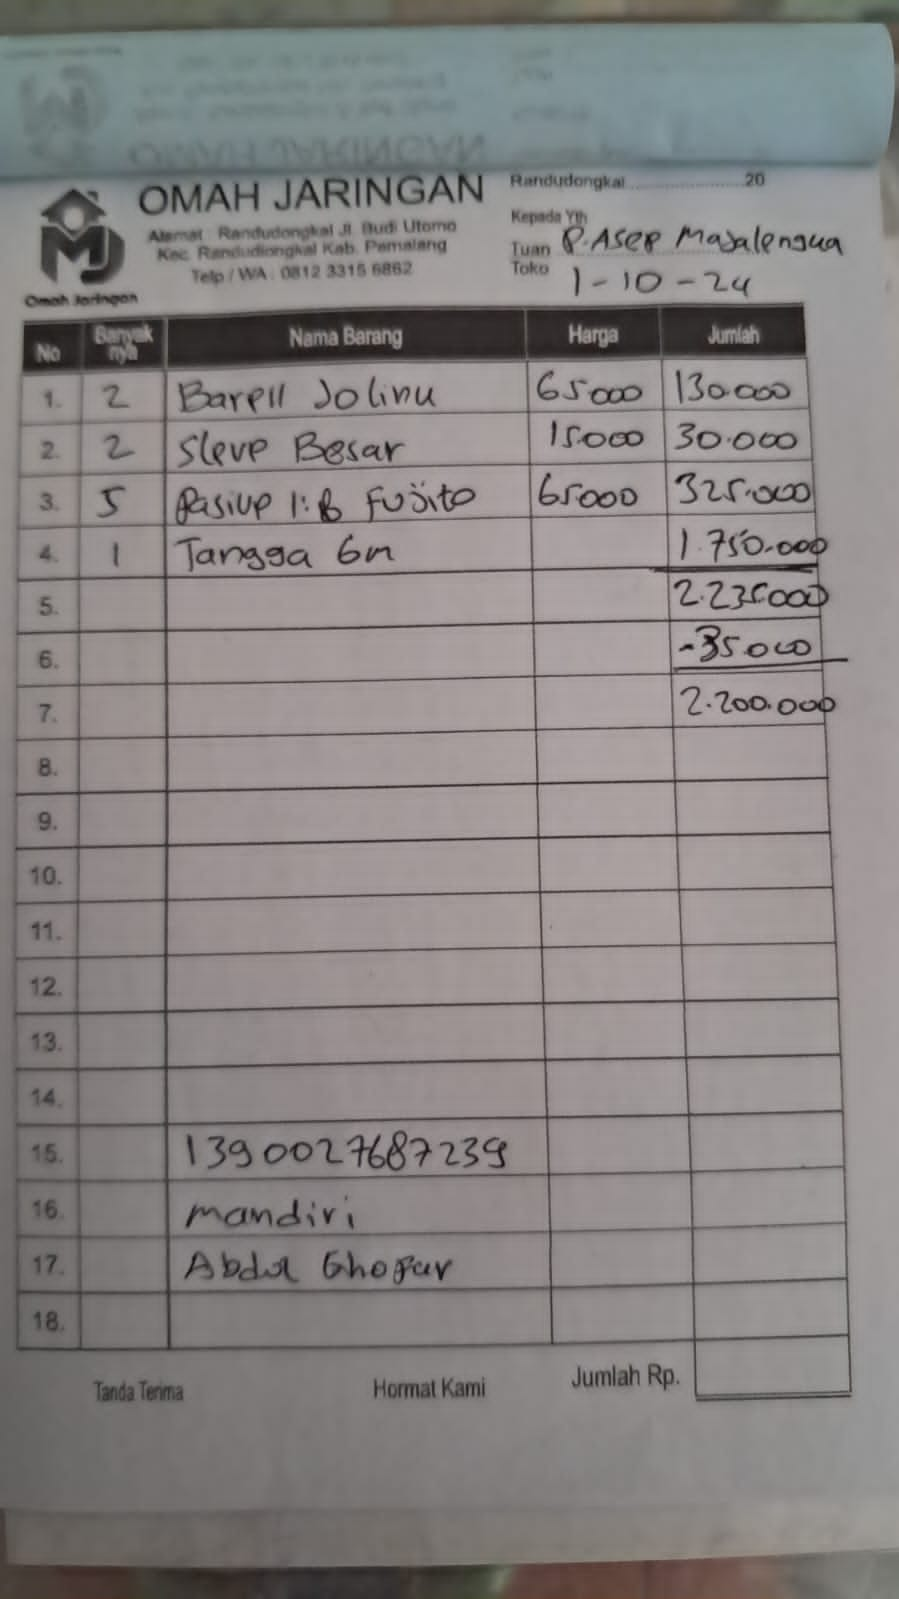 OMAH JARINGAN
Alamat : Randudongkal Jl. Budi Utomo
Kec. Randudongkal Kab. Pemalang
Telp / WA : 0812 3315 6862
Omah Jaringan
Randudongkal ........................ 20
Kepada Yth
Tuan P. ASEP Majalengua
Toko 1-10-24
No Banyak nya Nama Barang Harga Jumlah
1. 2 Barell Jolinu 65.000 130.000
2. 2 Sleve Besar 15.000 30.000
3. 5 Pasive 1:8 Fujito 65.000 325.000
4. 1 Tangga 6m 1.750.000
5. 2.235.000
6. -35.000
7. 2.200.000
8.
9.
10.
11.
12.
13.
14.
15. 1390027687239
16. mandiri
17. Abdul Ghofar
18.
Tanda Terima Hormat Kami Jumlah Rp.